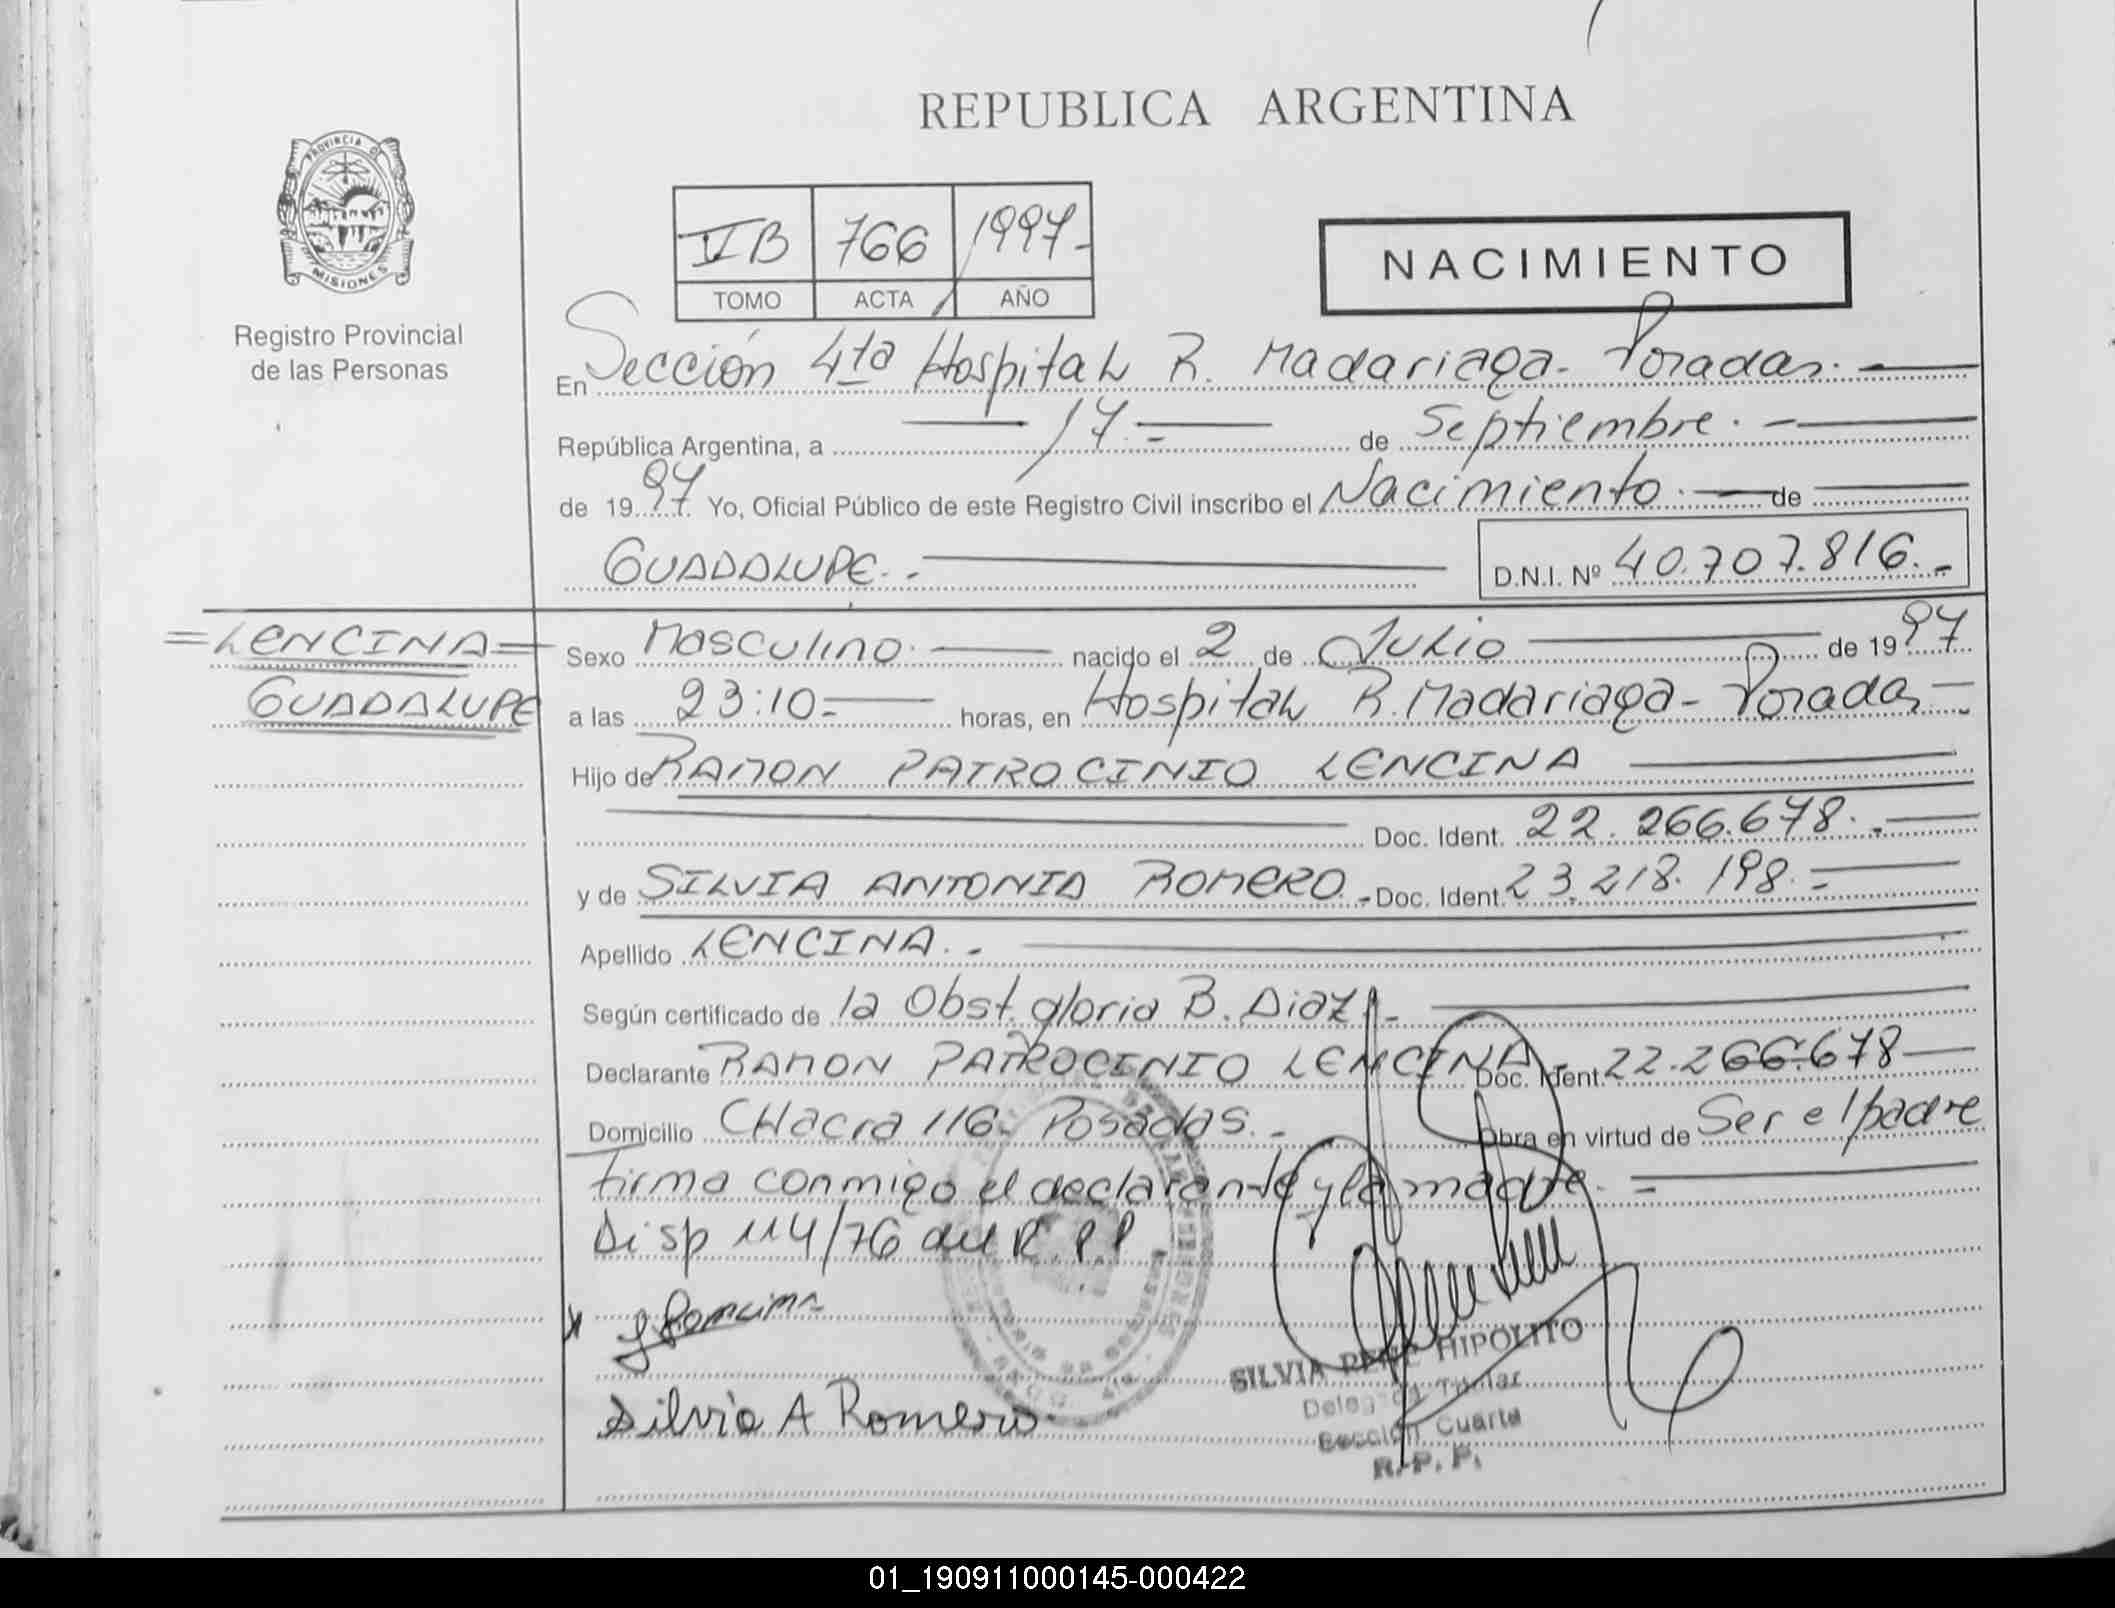 REPUBLICA ARGENTINA
PROVINCIA DE
MISIONES
Registro Provincial
de las Personas
VB 766 1997-
TOMO ACTA AÑO
NACIMIENTO
En Sección 4ta Hospital R. Madariaga- Posadas.
República Argentina, a 17.= de Septiembre.-
de 1997 Yo, Oficial Público de este Registro Civil inscribo el Nacimiento.- de
GUADALUPE.- D.N.I. Nº 40.707.816.-
=LENCINA= Sexo Masculino. nacido el 2 de Julio de 1997
GUADALUPE a las 23:10.- horas, en Hospital R. Madariaga- Posadas-
Hijo de RAMON PATROCINIO LENCINA
Doc. Ident. 22.266.678.-
y de SILVIA ANTONIA ROMERO.- Doc. Ident. 23.218.198.=
Apellido LENCINA.-
Según certificado de la Obst. gloria B. Diaz.-
Declarante RAMON PATROCINIO LENCINA Doc. Ident. 22.266.678
Domicilio CHacra 116- Posadas.- Obra en virtud de Ser el padre
firma conmigo el declarante y la madre.=
Disp 114/76 del R.P.P.
Silvia A Romero.
SILVIA RENE HIPOLITO
Delegada Titular
Sección Cuarta
R. P. P.
01_190911000145-000422